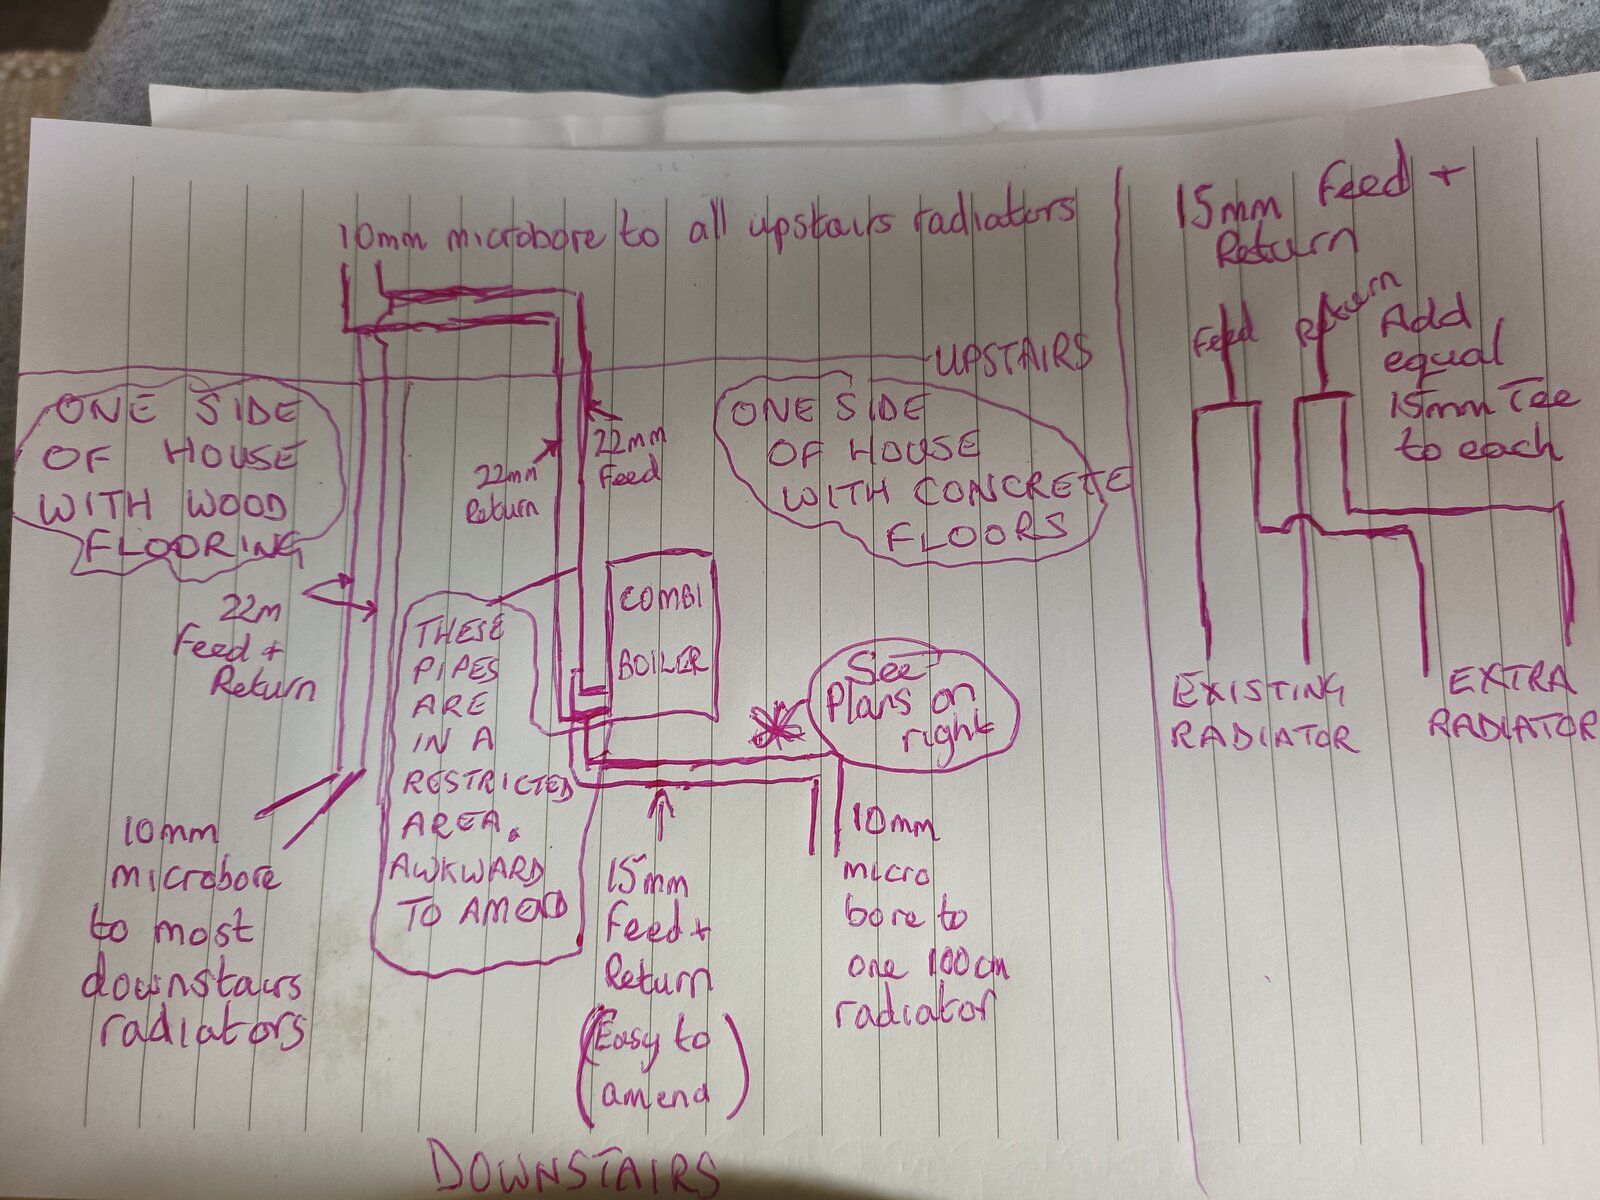 10mm microbore to all upstairs radiators
UPSTAIRS
ONE SIDE
OF HOUSE
WITH WOOD
FLOORING
22mm
Return
22mm
Feed
ONE SIDE
OF HOUSE
WITH CONCRETE
FLOORS
22m
Feed +
Return
COMBI
BOILER
THESE
PIPES
ARE
IN A
RESTRICTED
AREA.
AWKWARD
TO AMEND
See
Plans on
right
10mm
microbore
to most
downstairs
radiators
15mm
Feed +
Return
(Easy to
amend)
10mm
micro
bore to
one 100cm
radiator
DOWNSTAIRS
15mm Feed +
Return
Feed
Return
Add
equal
15mm Tee
to each
EXISTING
RADIATOR
EXTRA
RADIATOR